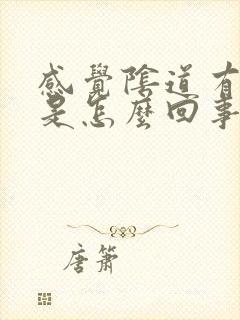 感覺陰道有
是怎麼回事
唐簫